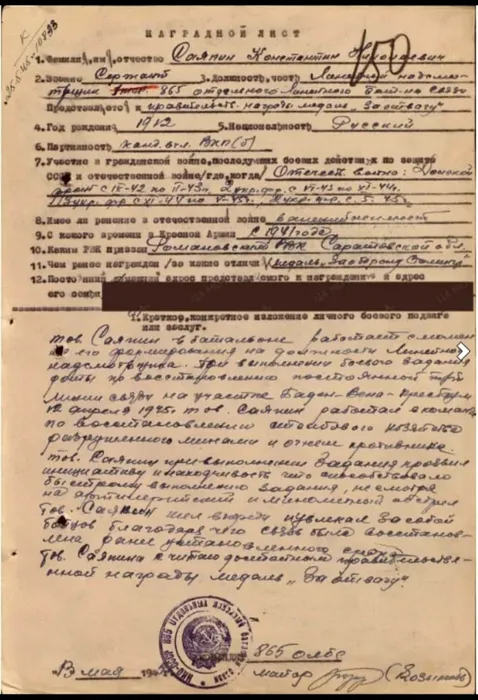 НАГРАДНОЙ ЛИСТ
1. Фамилия, имя, отчество Саяпин Константин
2. Звание Сержант 3. Должность, часть Линейный надсмо-
трщик 865 отдельного линейного бат-на связи
Представляется к правительств. награде медаль "За отвагу"
4. Год рождения 1912 5. Национальность Русский
6. Партийность канд. вкп(б)
7. Участие в гражданской войне, последующих боевых действиях по защите
СССР и отечественной войне (где, когда) Отечеств. война: Донской
фронт с IX-42 по II-43г.
8. Имеет ли ранение в отечественной войне
9. С какого времени в Красной Армии с 1941 года
10. Каким РВК призван Романовским РВК Саратовской обл.
11. Чем ранее награжден /за какие отличия/ медаль "За оборону Сталингр"
12. Постоянный домашний адрес представляемого к награждению и адрес
его семьи
1. Краткое, конкретное изложение личного боевого подвига
или заслуг.
тов. Саяпин в батальоне работает с момен-
та его формирования на должности линейно
надсмотрщика. При выполнении боевого задания
роты по восстановлению постоянной
линии связи на участке Баден-Вена-Пресбург
12 апреля 1945г тов. Саяпин работал в команде
по восстановлению столбового хозяйства
разрушенного минами и огнем противника.
тов. Саяпин при выполнении задания проявил
инициативу и находчивость что способствовало
быстрому выполнению задания, не смотря
на артиллерийский и минометный обстрел
тов. Саяпин шел впереди и увлекал за собой
бойцов благодаря чего связь была восстанов-
лена ранее установленного срока.
тов. Саяпина считаю достойным правительстве-
нной награды медаль "За отвагу".
865 олбс
13 мая майор